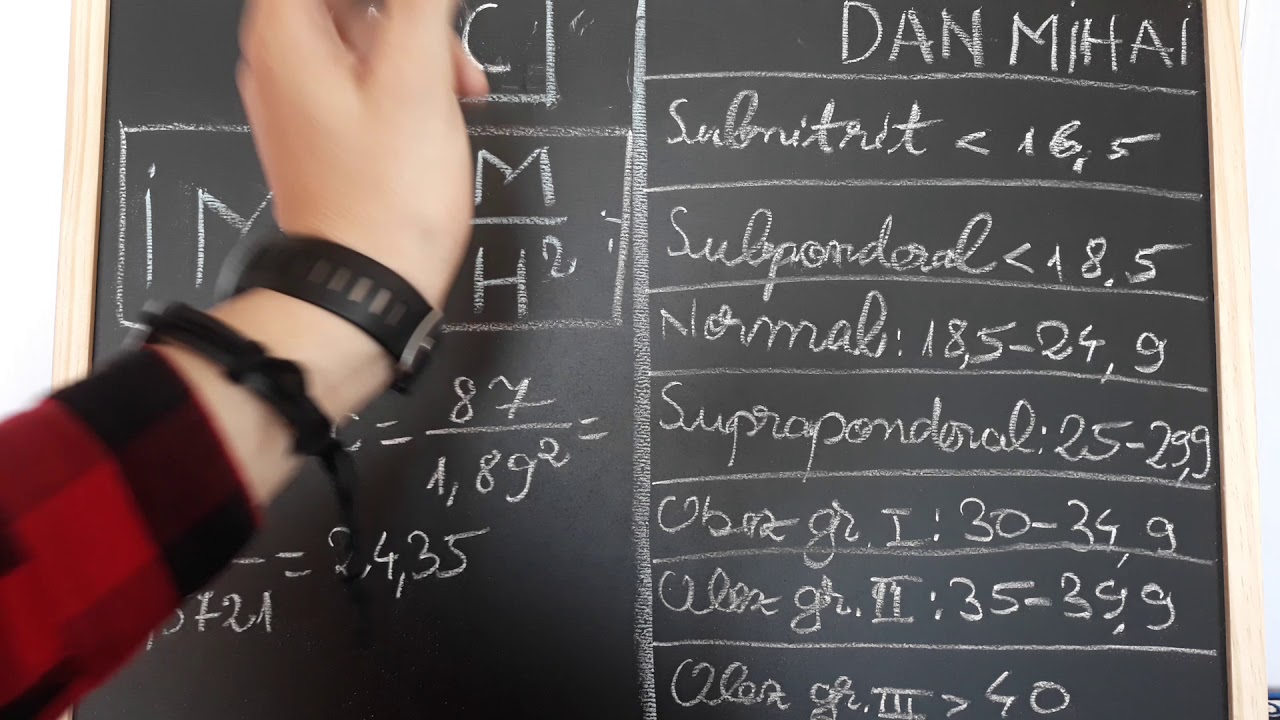 C
İ M M
H²
C = 87 =
1,89²
= 24,35
5721
DAN MİHAİ
Subnitrit < 16,5
Subponderal < 18,5
Normal: 18,5-24,9
Supraponderal: 25-29,9
Obez gr. I: 30-34,9
Obez gr. II: 35-39,9
Obez gr. III > 40